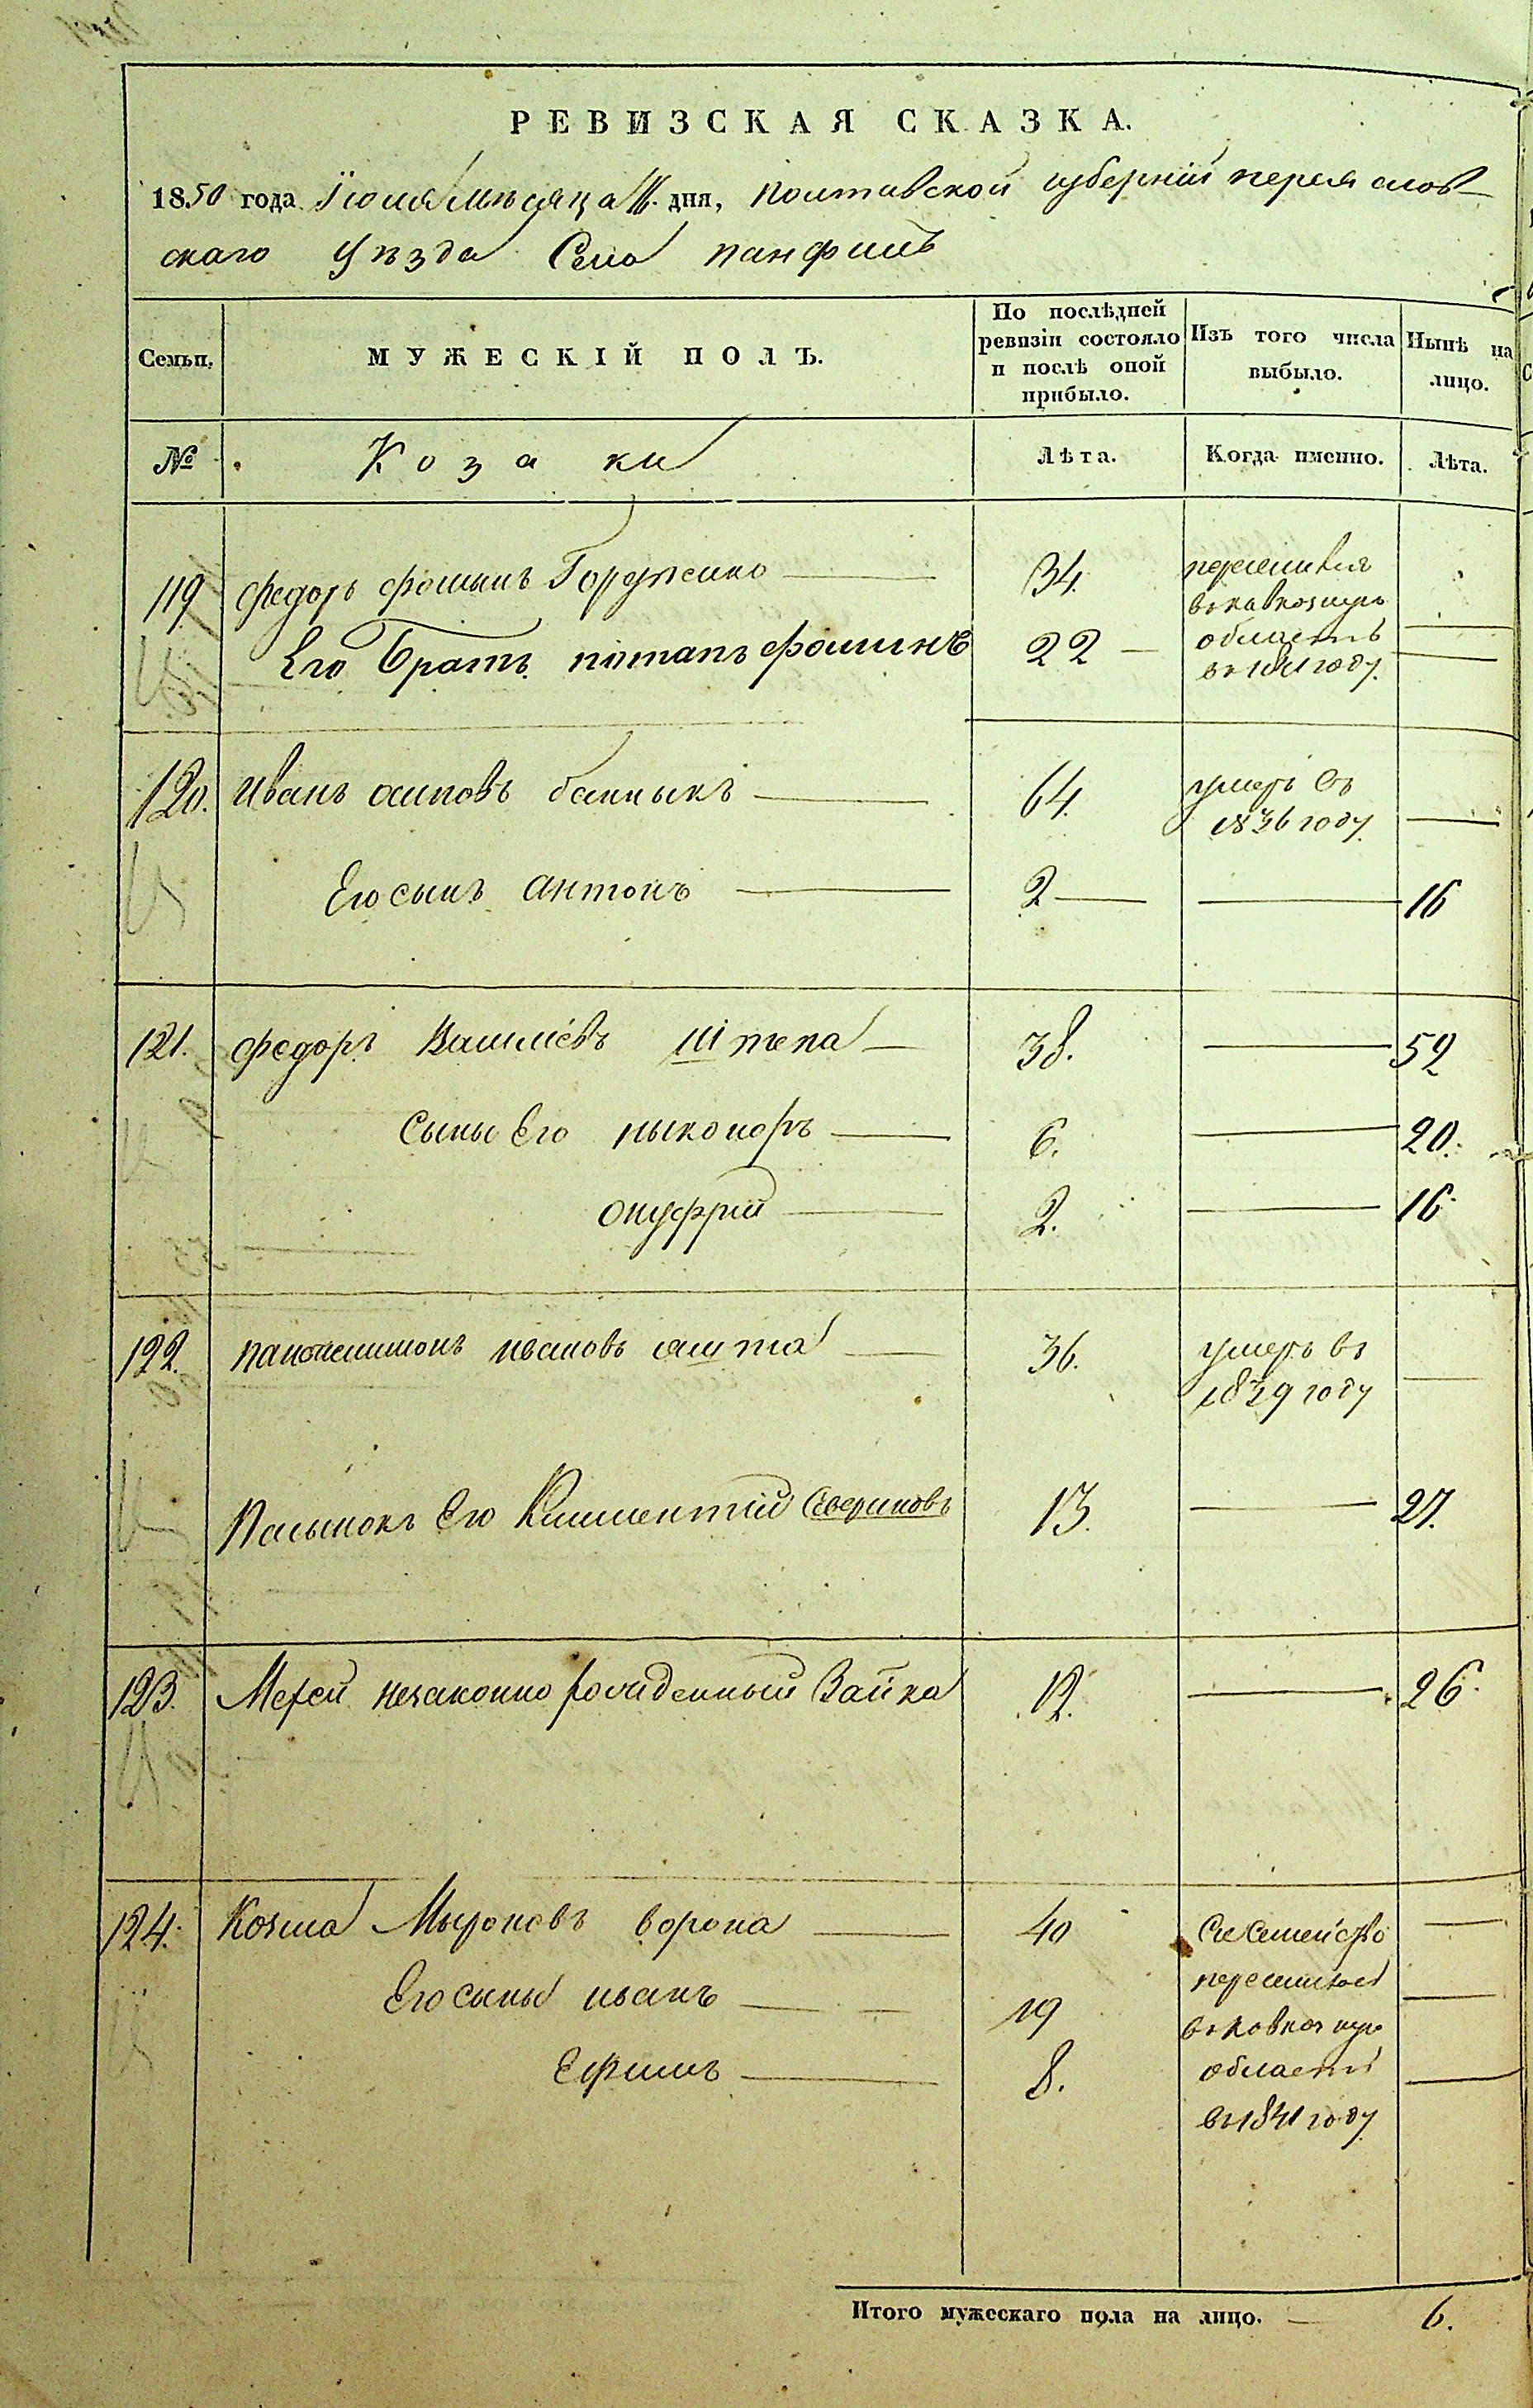 РЕВИЗСКАЯ СКАЗКА.
1850 года Іюля Мѣсяца 16. дня, Полтавской губерніи переяслов-
скаго Уѣзда Села панфилъ
Семьи.
МУЖЕСКІЙ ПОЛЪ.
По послѣдней ревизіи состояло и послѣ оной прибыло.
Изъ того числа выбыло.
Нынѣ на лицо.
№
Козаки
Лѣта.
Когда именно.
Лѣта.
119 федоръ фоминъ 34. переселился
вкавказкую
Его Братъ потапъ фоминъ 22 область
в 1841 году.
120. иванъ осиповъ 64. умеръ въ
1836 году
Его сынъ антонъ 2 16
121. федоръ Василіевъ штепа 38. 52
Сыны Его ныконоръ 6. 20.
онуфрий 2. 16
122. пантелимонъ ивановъ 36. умеръ въ
1839 году
Пасынокъ Его Климентий Севериновъ 13. 27.
123. Мефей незаконно рожденный Зайка 12. 26.
124. Козма Мыроновъ ворона 40 Сие Семейство
переселилось
Его сыны иванъ 19 вкавказкую
Ефимъ 8. область
в 1841 году
Итого мужескаго пола на лицо. 6.